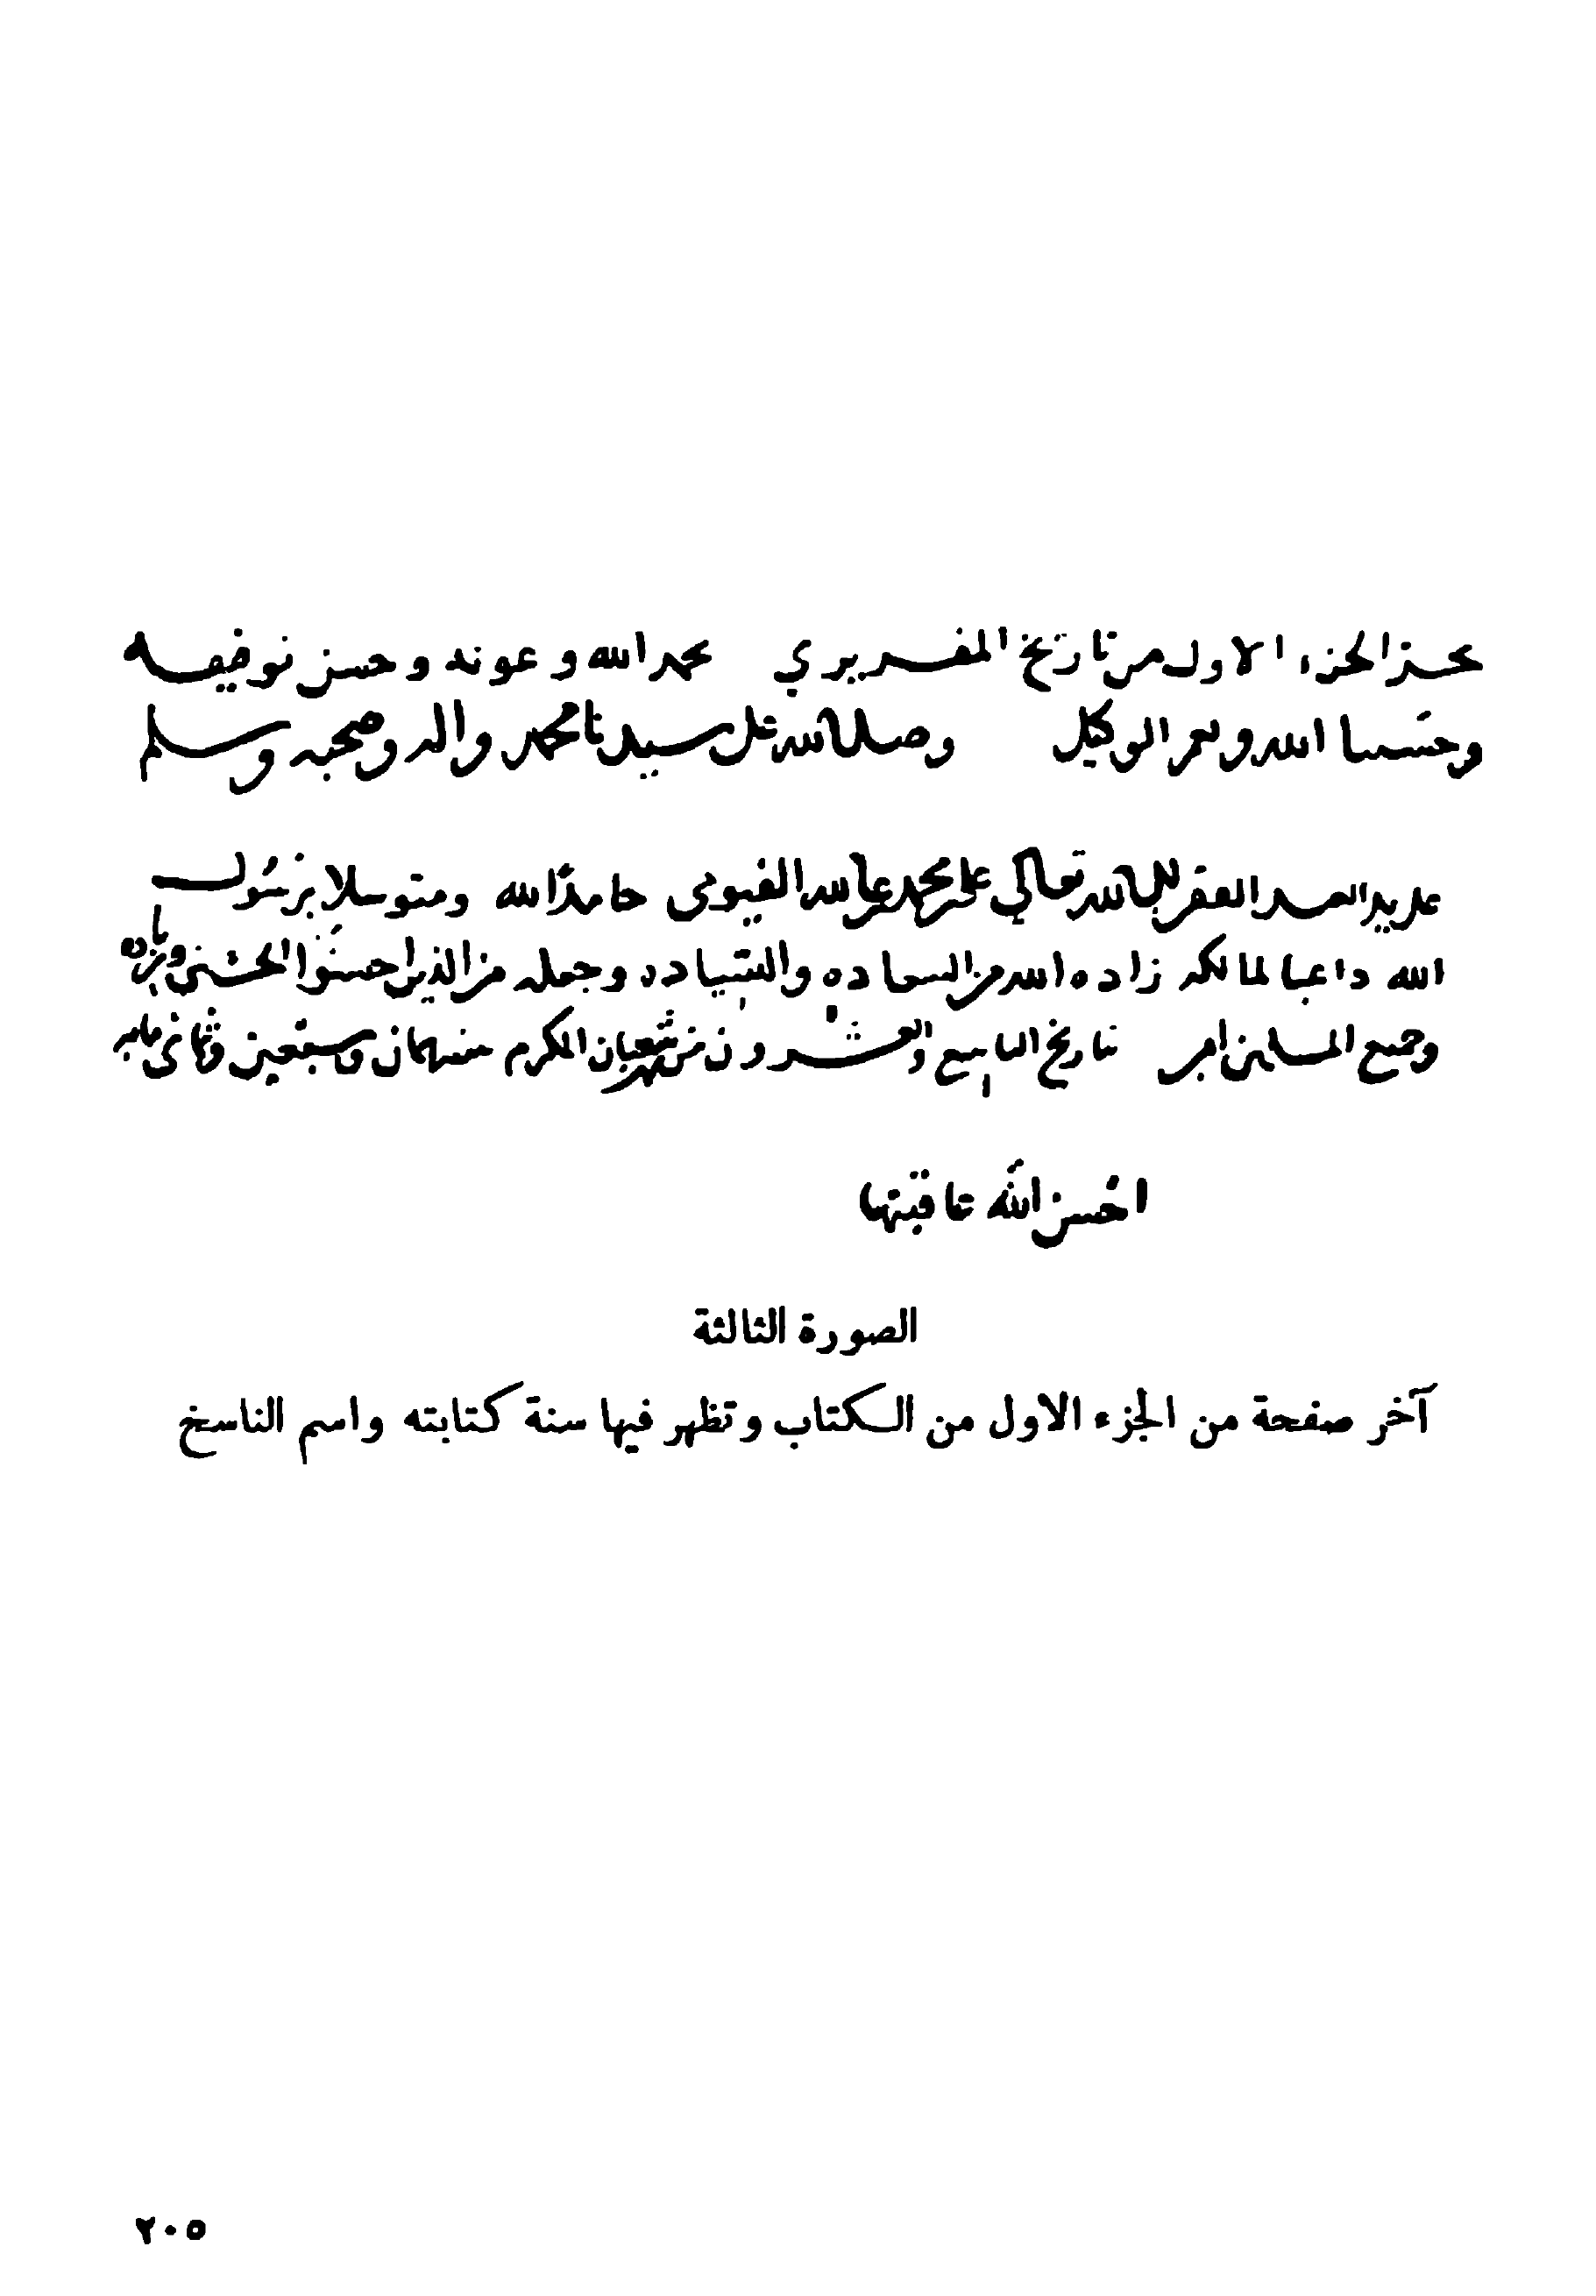 نجز الجزء الاول من تاريخ المقريزي بحمد الله وعونه وحسن توفيقه
وحسبنا الله ونعم الوكيل وصلى الله على سيدنا محمد واله وصحبه وسلم
على يد العبد الفقير الى الله تعالي على بن محمد بن عبد الله الفيومى حامدًا لله ومتوسلا برسُول
الله داعيا لمالكه زاده الله من السعاده والسياده وجعله من الذين احسنُوا الحسنى وزياده
وجميع المسلمين امين بتاريخ السابع والعشرون من شهر شعبان المكرم سنه ثمان وسبعين وثماني مايه
احُسن اللّه عاقبتها
الصورة الثالثة
آخر صفحة من الجزء الاول من الكتاب وتظهر فيها سنة كتابته واسم الناسخ
٢٠٥